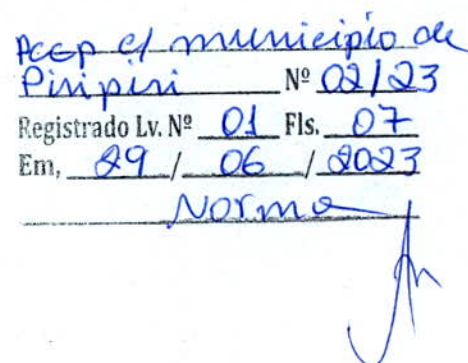 Pccp c/ município de
Piripiri Nº 02/23
Registrado Lv. Nº 01 Fls. 07
Em, 29 / 06 / 2023
Norma